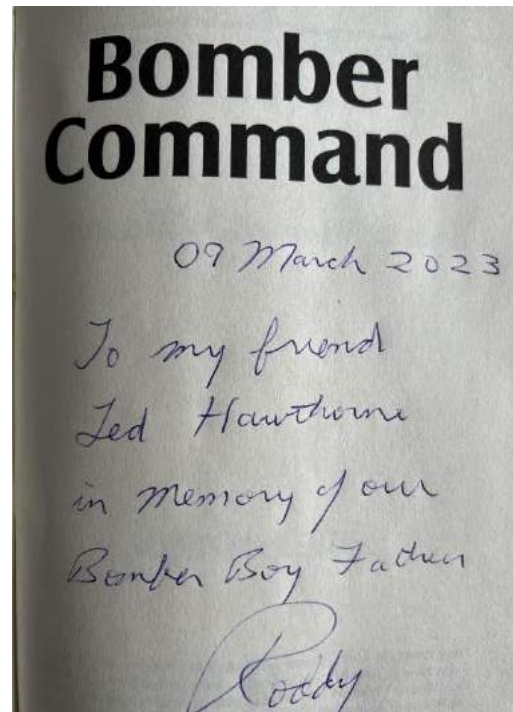 Bomber
Command
09 March 2023
To my friend
Ted Hawthorne
in memory of our
Bomber Boy Father
Roddy